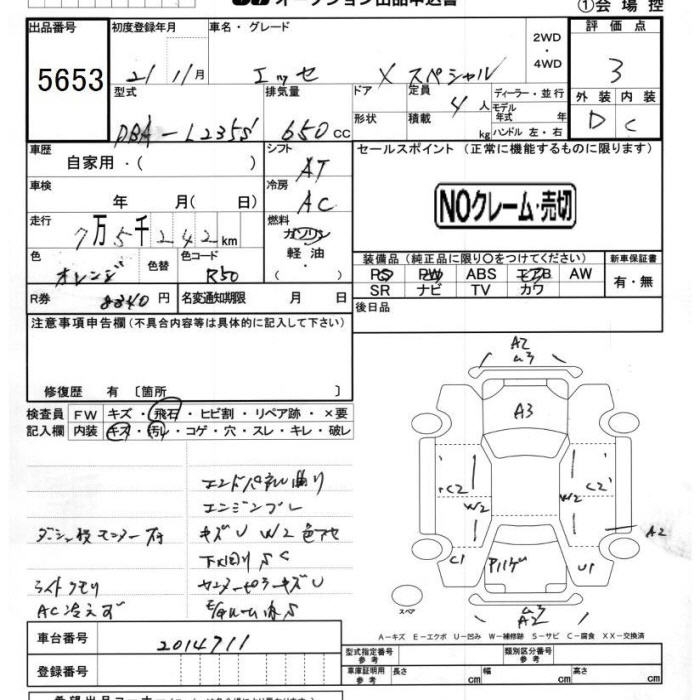 オークション出品申込書
①会場控
出品番号 5653
初度登録年月 21 11月
車名・グレード エッセ X スペシャル
2WD・4WD
評価点 3
型式 DBA-L235S
排気量 650cc
ドア
形状
定員 4人
積載 kg
ディーラー・並行
モデル年式 年
ハンドル 左・右
外装 D
内装 C
車歴 自家用・( )
シフト AT
セールスポイント (正常に機能するものに限ります)
車検 年 月( 日)
冷房 AC
NOクレーム・売切
走行 7万5千242km
燃料 ガソリン
軽油・
色 オレンジ
色替
色コード R50
装備品 (純正品に限り○をつけてください)
新車保証書
PS PW ABS エアB AW
有・無
SR ナビ TV カワ
R券 8340円
名変通知期限 月 日
後日品
注意事項申告欄 (不具合内容等は具体的に記入して下さい)
修復歴 有 〔箇所 〕
検査員記入欄
FW キズ・飛石・ヒビ割・リペア跡・×要
内装 キズ・汚レ・コゲ・穴・スレ・キレ・破レ
エンドパネル曲り
エンジンブレ
キズU W2 色アセ
下回りSC
ライトクモリ
AC冷えず
A2
A3
C2
W2
W2
C2
A2
C1
U1
A2
スペア
A-キズ E-エクボ U-凹み W-補修跡 S-サビ C-腐食 XX-交換済
車台番号 2014711
登録番号
型式指定番号 参考
類別区分番号 参考
車庫証明用 参考
長さ cm 幅 cm 高さ cm